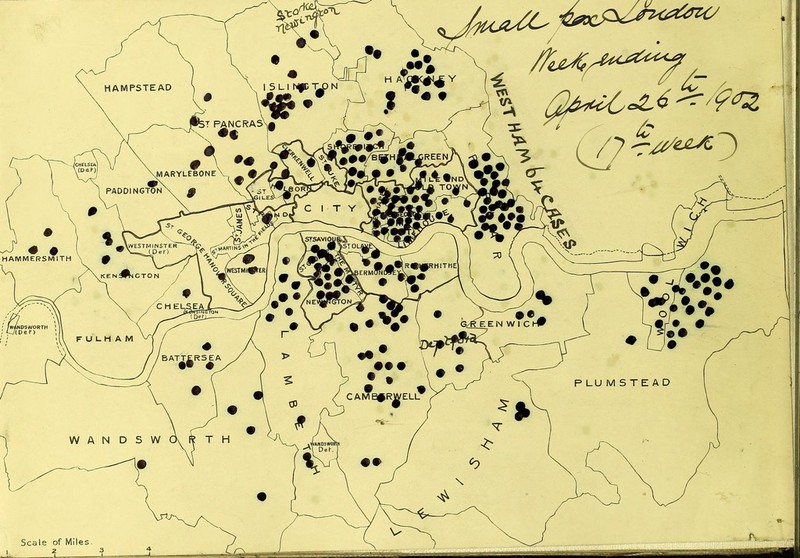 Small pox London
Week ending
April 26th 1902
(17th week)
Stoke
Newington
HAMPSTEAD
ISLINGTON
HACKNEY
WEST HAM 64 CASES
ST PANCRAS
SHOREDITCH
CLERKENWELL
ST LUKE
BETHNAL GREEN
CHELSEA
(Det)
MARYLEBONE
MILE END
OLD TOWN
PADDINGTON
ST
GILES
HOLBORN
STRAND
CITY
POPLAR
ST JAMES
WOOLWICH
ST MARTINS IN THE FIELDS
WESTMINSTER
(Det)
ST GEORGE HANOVER SQUARE
ST SAVIOUR'S
ST OLAVE
HAMMERSMITH
KENSINGTON
WESTMINSTER
BERMONDSEY
ROTHERHITHE
ST GEORGE THE MARTYR
CHELSEA
NEWINGTON
KENSINGTON
(Det)
WANDSWORTH
(Det)
FULHAM
GREENWICH
Deptford
BATTERSEA
LAMBETH
CAMBERWELL
PLUMSTEAD
WANDSWORTH
WANDSWORTH
Det.
LEWISHAM
Scale of Miles.
2 3 4